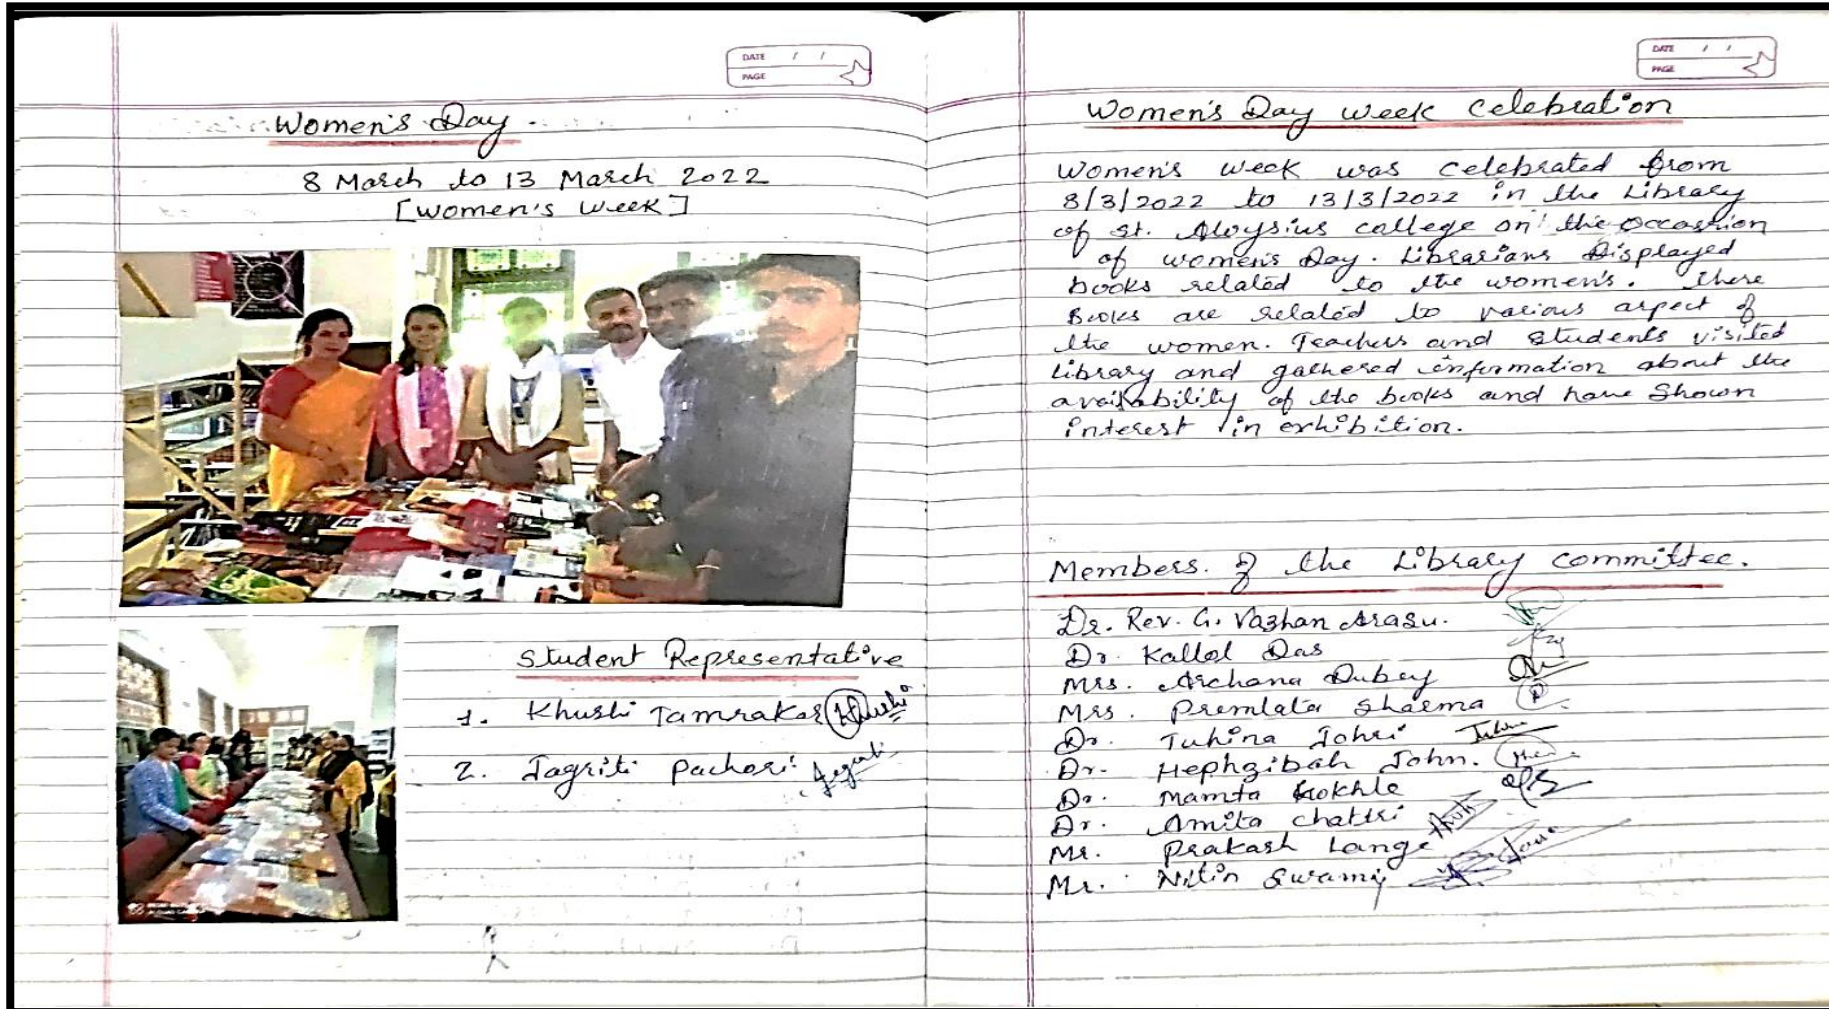 DATE / /
PAGE
Women's Day
8 March to 13 March 2022
[Women's Week]
Student Representative
1. Khushi Tamrakar Khushi
2. Jagriti Pachori Jagriti
DATE / /
PAGE
Women's Day week celebration
Women's week was celebrated from
8/3/2022 to 13/3/2022 in the Library
of st. Aloysius college on the occasion
of women's Day. Librarians Displayed
books related to the women's. There
Books are related to various aspect of
the women. Teachers and students visited
library and gathered information about the
availability of the books and have shown
interest in exhibition.
Members of the Library committee.
Dr. Rev. G. Vazhan Arasu.
Dr. Kallol Das
Mrs. Archana Dubey
Mrs. Premlata Sharma
Dr. Tuhina Johri
Dr. Hephzibah John.
Dr. Mamta Gokhle
Dr. Amita chattri
Mr. Prakash Lange
Mr. Nitin Swami